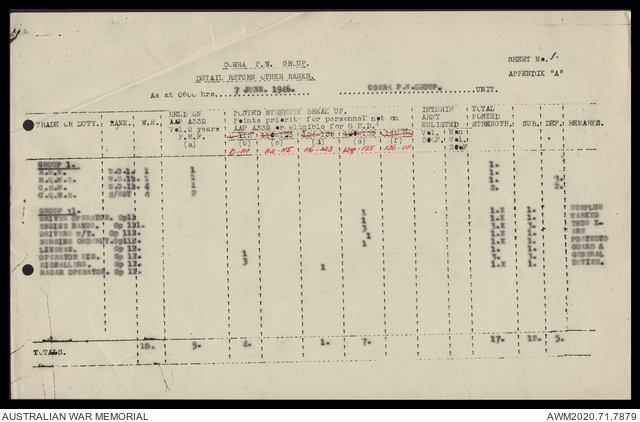 COWRA P.W. GROUP.
SHEET No. 1.
DETAIL RETURN OTHER RANKS.
APPENDIX "A"
As at 0600 hrs. 7 JUNE. 1946. COWRA P.W.GROUP. UNIT.
HELD ON POSTED STRENGTH BREAK UP. INTERIM TOTAL
AAF A332 Points priority for personnel not on ARMY POSTED
TRADE OR DUTY. RANK. W.E. Vol. 2 years AAF A332 or eligible for ENLISTED STRENGTH. SUR. DEF. REMARKS.
P.M.F. Vol. Non
(a) (b) (c) (d) (e) (f) Vol.
0-111 112-115 116-123 124-135 136-UP
GROUP 1.
1 1 1.
R.Q.M.S. W.O.1b. 1 1 1. 3.
C.S.M. 4 1 1. 2.
C.Q.M.S. S/SGT 4 2 2. 2.
SURPLUS
DRIVER OPERATOR. 1 1.X 1. MARKED
ENGINE HANDS. 1 1.X 1. THUS X
DRIVERS M/T. Gp 112. 3 3. ARE
NURSING ORDERLY. 1 1.X 1. POSTED TO
LINEMAN. Gp 12. 1 1.X 1. GUARD &
OPERATOR SIG. Gp 12. 1 GENERAL
SIGNALLERS. Gp 12. 3 3. DUTIES.
RADAR OPERATOR. Gp 12. 1 1.X 1.
TOTALS. 10. 5. 4. 1. 7. 17. 12. 5.
AUSTRALIAN WAR MEMORIAL
AWM2020.71.7879